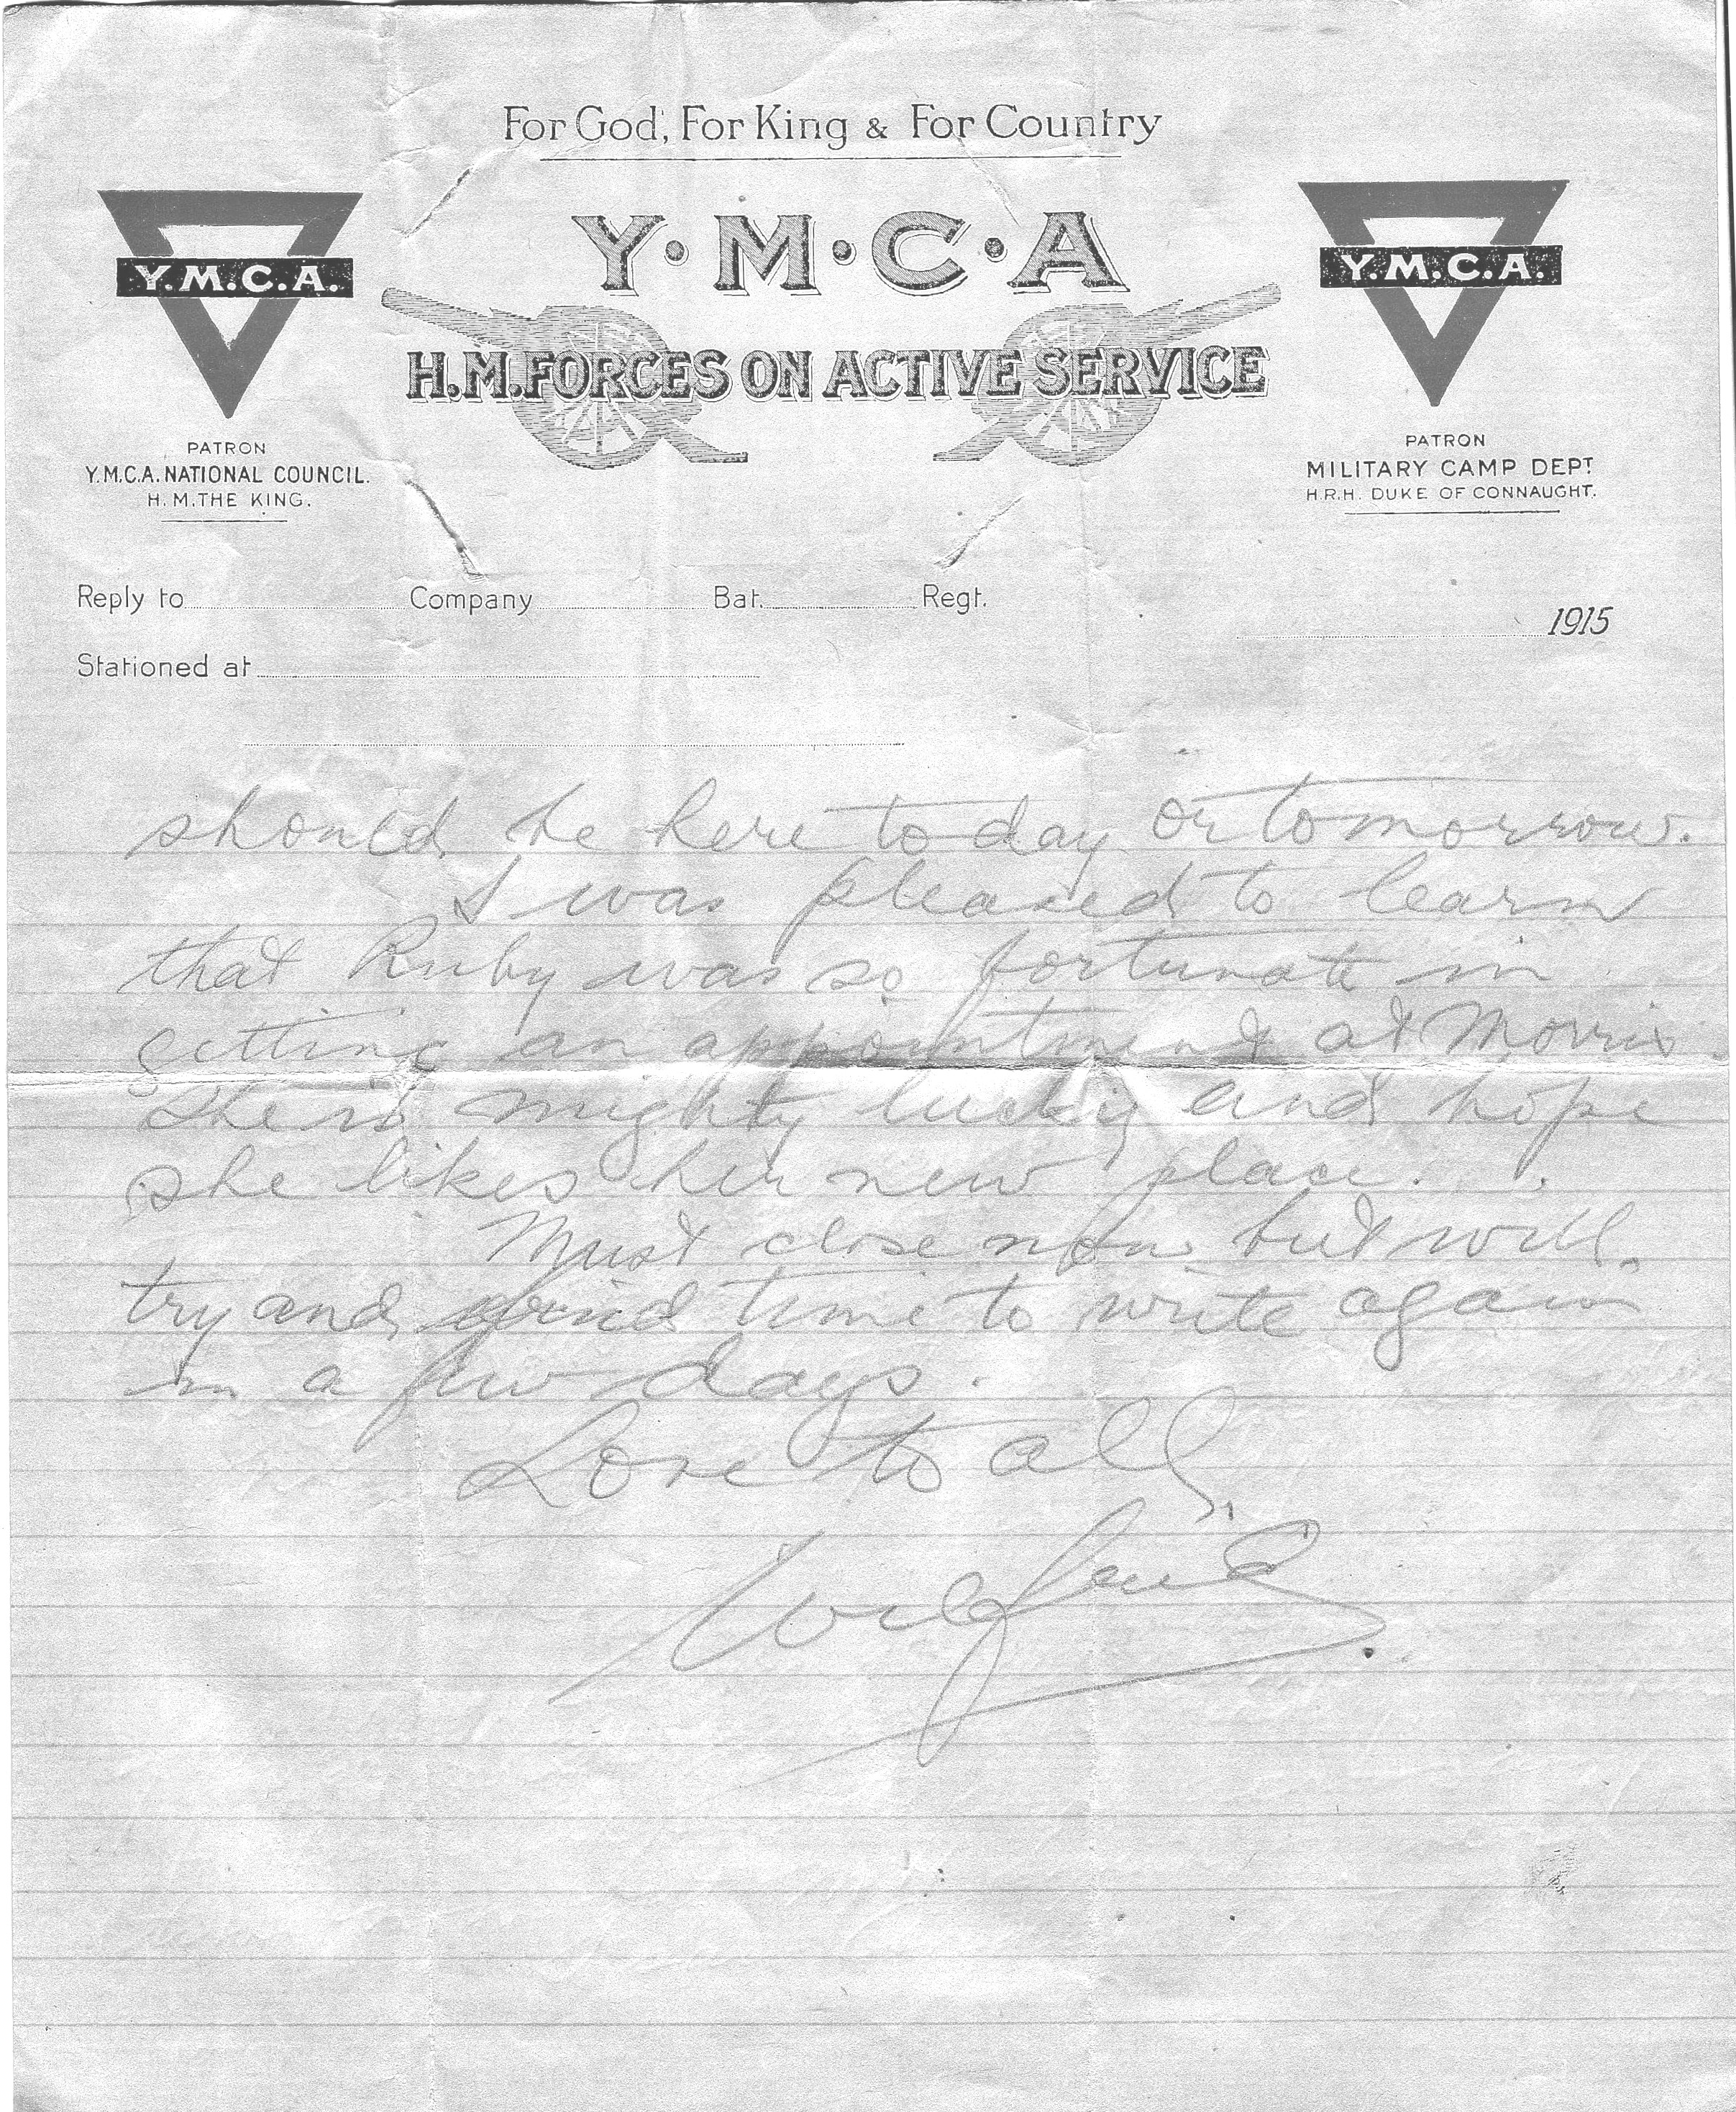 For God, For King & For Country
Y·M·C·A
Y.M.C.A.
Y.M.C.A.
H.M. FORCES ON ACTIVE SERVICE
PATRON
Y.M.C.A. NATIONAL COUNCIL.
H.M. THE KING.
PATRON
MILITARY CAMP DEPT
H.R.H. DUKE OF CONNAUGHT.
Reply to Company Bat. Regt.
1915
Stationed at
should be here today or tomorrow.
I was pleased to learn
that Ruby was so fortunate in
getting an appointment at Morris.
She is mighty lucky and hope
she likes her new place.
Must close now but will
try and find time to write again
in a few days.
Love to all,
Wilfred.